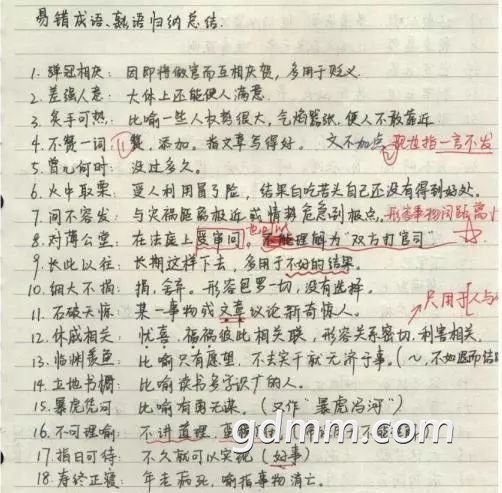 易错成语、熟语归纳总结.
1. 弹冠相庆: 因即将做官而互相庆贺, 多用于贬义.
2. 差强人意: 大体上还能使人满意.
3. 炙手可热: 比喻一些人权势很大, 气焰嚣张, 使人不敢靠近
4. 不赞一词: ①赞, 添加. 指文章写得好. 文不加点. ②现也指一言不发
5. 曾几何时: 没过多久.
6. 火中取栗: 受人利用冒了险, 结果白吃苦头自己还没有得到好处.
7. 间不容发: 与灾祸距离极近或情势危急到极点. 形容事物间距离小
8. 对薄公堂: 在法庭上受审问. 也可以理解为"双方打官司"
9. 长此以往: 长期这样下去, 多用于不好的结果.
10. 细大不捐: 捐, 弃. 形容包罗一切, 没有选择.
11. 石破天惊: 某一事物或文章议论新奇惊人.
只用于人与
12. 休戚相关: 忧喜, 福祸彼此相关联, 形容关系密切, 利害相关.
13. 临渊羡鱼: 比喻只有愿望, 不去实干就无济于事. (～, 不如退而结
14. 立地书橱: 比喻读书多学识广的人.
15. 暴虎凭河: 比喻有勇无谋. (只作"暴虎冯河")
16. 不可理喻: 不讲道理,
17. 指日可待: 不久就可以实现 (好事)
18. 寿终正寝: 年老病死, 喻指事物消亡.
gdmm.com